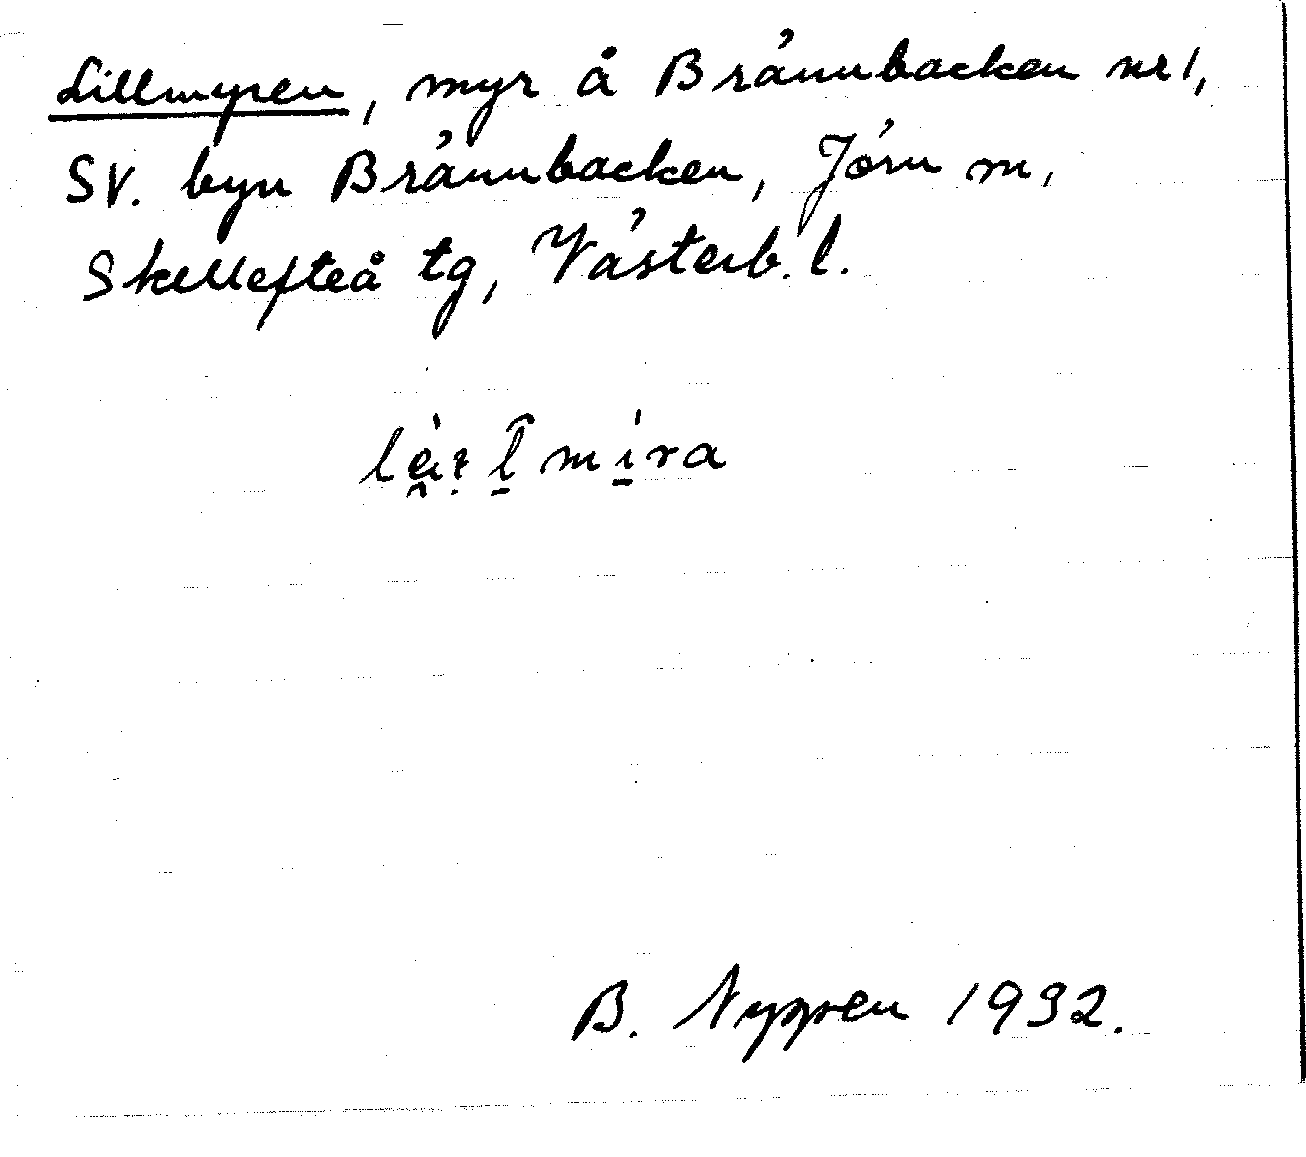 Lillmyren, myr å Brännbacken nr 1,
SV. byn Brännbacken, Jörn m,
Skellefteå tg, Västerb. l.
B. Nyppen 1992.